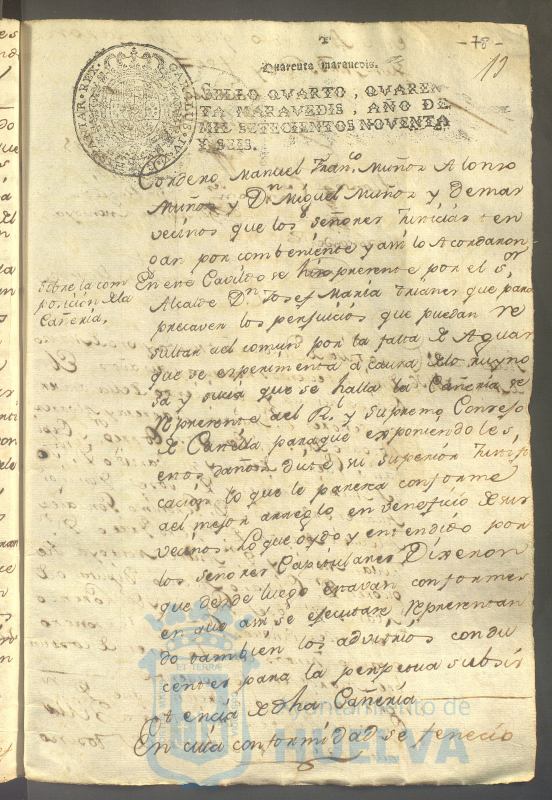 - 78 -
19
Quarenta maravedis.
SELLO QVARTO, QVAREN
TA MARAVEDIS, AÑO DE
MIL SETECIENTOS NOVENTA
Y SEIS.
CAROLUS IV D G HISPANIAR REX
Cordero Manuel Franco Muñoz Alonso
Muñoz y Dn Miguel Muñoz y Demas
vecinos que los señores Justicias ten
gan por combeniente y asi lo Acordaron
Sobre la com
posicion dela
Cañeria.
En este Cavildo se hiso presente por el Sor
Alcalde Dn Josef Maria Trianes que para
precaver los perjuicios que puedan re
sultar al comun por la falta de Aguas
que se experimenta a causa dela ruyno
sa y sucia que se halla la Cañeria se
represente al Rl y Supremo Consejo
de Castilla para que exponiendoles,
estos daños dusé, su superior Justifi
cacion lo que le paresca conforme
al mejor arreglo en veneficio de sus
vecinos. Lo que oydo y entendido por
los señores Capitulares Dixeron
que desde luego estavan conformes
en que asi se executase representan
do tambien los advitrios condu
centes para la perpetua subsis
tencia de dha Cañeria
En cuia conformidad se fenecio
ET TERRAE
Ayuntamiento de
HUELVA